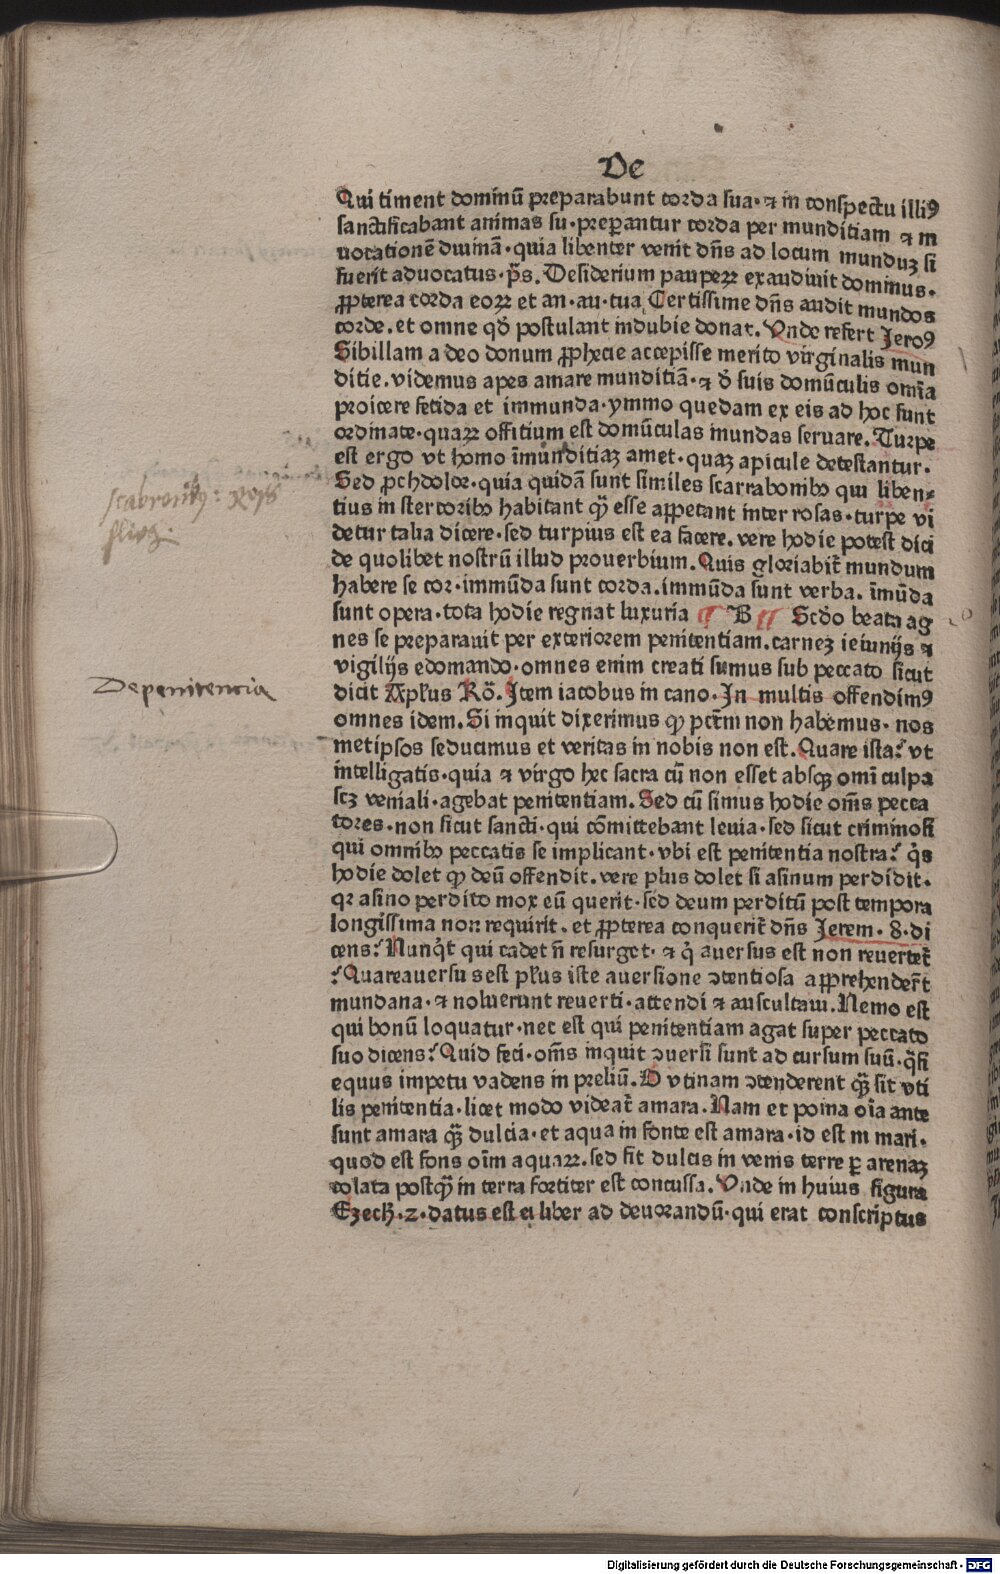 De
Qui timent dominū preparabunt corda sua· ⁊ in conspectu illiꝰ
sanctificabant animas su·preꝑantur corda per munditiam ⁊ in
uocationē diuinā·quia libenter venit dn̄s ad locum munduꝫ si
fuerit aduocatus·p̄s. Desiderium pauperꝝ exaudiuit dominus.
ꝓpterea corda eoꝝ et an·au·tua Certissime dn̄s audit mundos
corde.et omne qd̄ postulant indubie donat. Vnde refert Jeroꝰ
Sibillam a deo donum ꝓphecie accepisse merito virginalis mun
ditie.videmus apes amare munditiā·⁊ d̄ suis domūculis om̄ia
proicere fetida et immunda·ymmo quedam ex eis ad hoc sunt
ordinate·quaꝝ offitium est domūculas mundas seruare. Turpe
est ergo vt homo īmunditiaꝫ amet·quaꝫ apicule detestantur.
Sed ꝓchdolor·quia quidā sunt similes scarrabonibꝰ qui liben⸗
tius in stercoribꝰ habitant qͣꝫ esse appetant inter rosas·turpe vi
detur talia dicere·sed turpius est ea facere. vere hodie potest dici
de quolibet nostrū illud prouerbium. Quis gloriabit̄ mundum
habere se cor·immūda sunt corda.immūda sunt verba. īmūda
sunt opera·tota hodie regnat luxuria ¶ B ¶ Scdo beata ag
nes se preparauit per exteriorem penitentiam.carneꝫ ieiunijs ⁊
vigilijs edomando·omnes enim creati sumus sub peccato sicut
dicit Apl̄us Rō. Item iacobus in cano·In multis offendimꝰ
omnes idem. Si inquit dixerimus qꝫ pctm̄ non habemus· nos
metipsos seducimus et veritas in nobis non est. Quare ista? vt
intelligatis·quia ⁊ virgo hec sacra cū non esset absqꝫ omī culpa
scꝫ veniali·agebat penitentiam. Sed cū simus hodie om̄s pecca
tores·non sicut sancti·qui cōmittebant leuia·sed sicut criminosi
qui omnibꝰ peccatis se implicant·vbi est penitentia nostra? q̇s
hodie dolet qꝫ deū offendit.vere plus dolet si asinum perdidit.
qꝛ asino perdito mox eū querit·sed deum perditū post tempora
longissima non requirit. et ꝓpterea conquerit̄ dn̄s Jerem· 8·di
cens? Nunq̇t qui cadet n̄ resurget· ⁊ q̇ auersus est non reuertet̄
? Quareauersus est pl̄us iste auersione ꝯtentiosa apprehender̄t
mundana·⁊ noluerunt reuerti·attendi ⁊ auscultaui. Nemo est
qui bonū loquatur·nec est qui penitentiam agat super peccato
suo dicens? Quid feci·om̄s inquit ꝯuersi sunt ad cursum suū·q̄si
equus impetu vadens in preliū. O vtinam ꝯtenderent qͣꝫ sit vti
lis penitentia·licet modo videat̄ amara. Nam et poma oīa ante
sunt amara qͣꝫ dulcia·et aqua in fonte est amara·id est in mari·
quod est fons oīm aquaꝝ.sed fit dulcis in venis terre ꝑ arenaꝫ
colata postqͣꝫ in terra fortiter est concussa. Vnde in huius figura
Ezech̄·2·datus est ei liber ad deuorandū·qui erat conscriptus
De penitencia
Digitalisierung gefördert durch die Deutsche Forschungsgemeinschaft · DFG